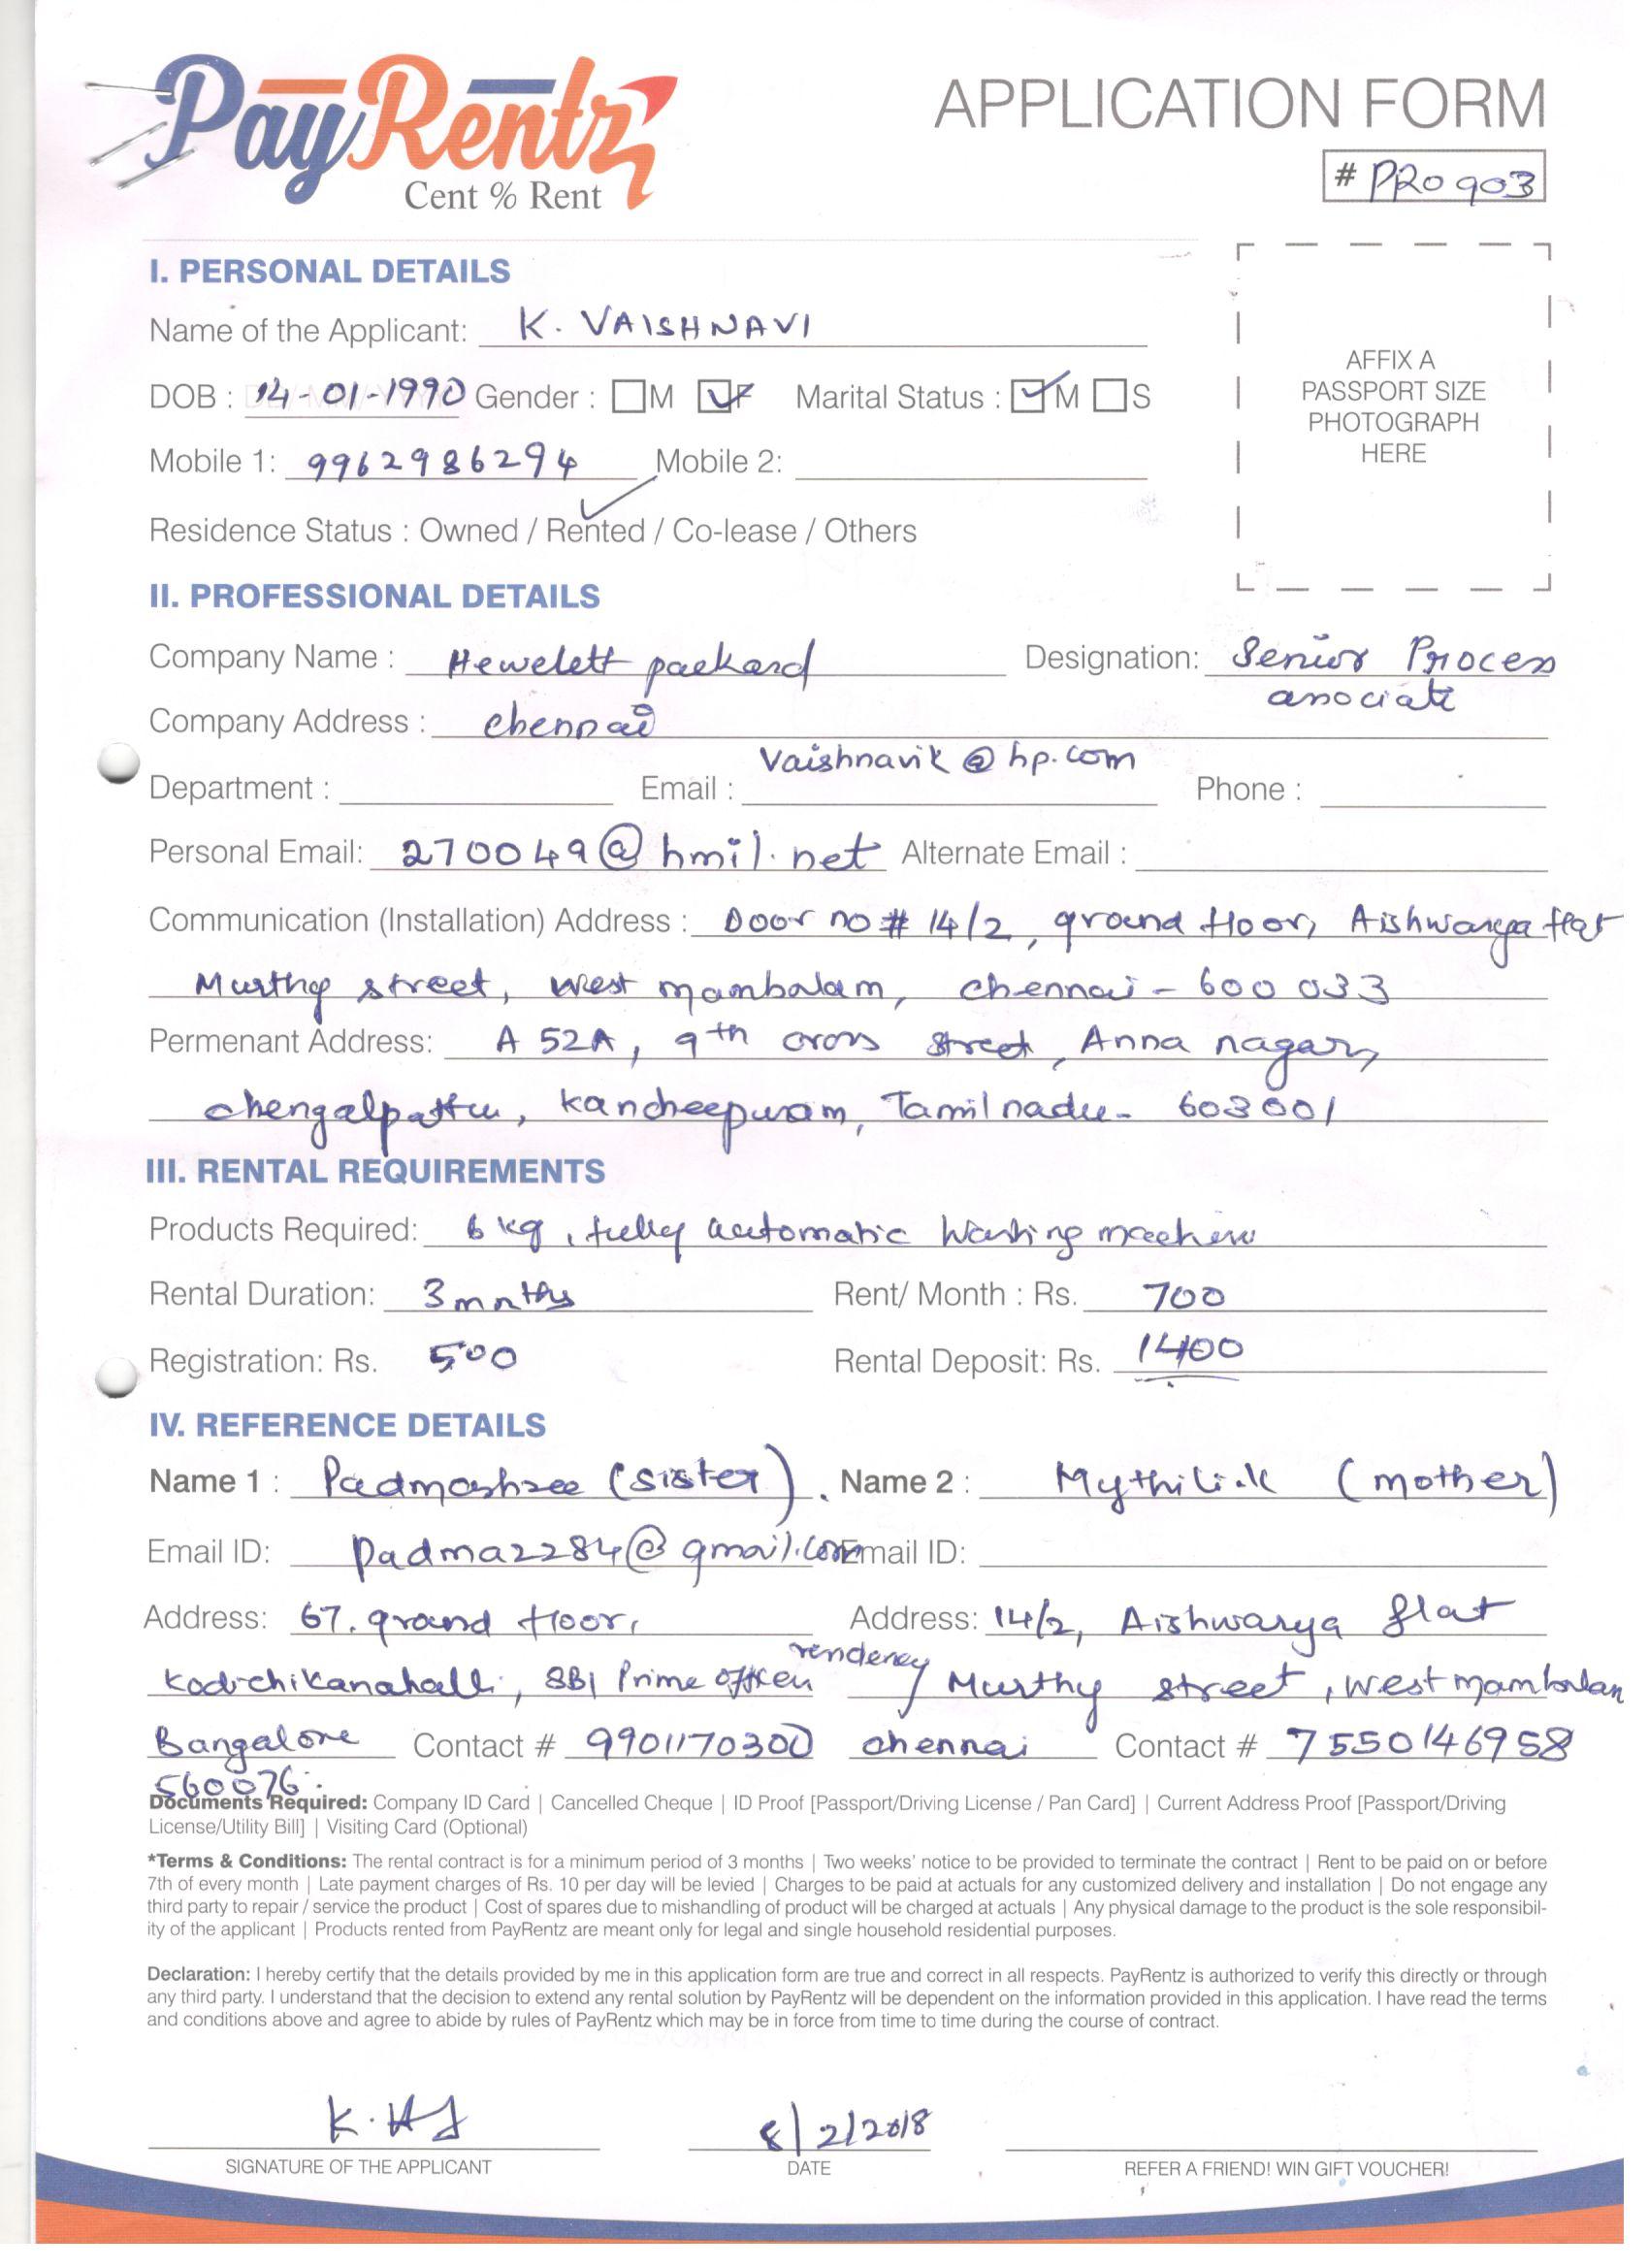 PayRentz
Cent % Rent
APPLICATION FORM
# PRO903
I. PERSONAL DETAILS
Name of the Applicant: K. VAISHNAVI
DOB : 14-01-1990 Gender : M F Marital Status : M S
Mobile 1: 9962986294 Mobile 2:
Residence Status : Owned / Rented / Co-lease / Others
AFFIX A
PASSPORT SIZE
PHOTOGRAPH
HERE
II. PROFESSIONAL DETAILS
Company Name : Hewelett packard Designation: Senior Process
associate
Company Address : chennai
Department : Email : Vaishnavik@hp.com Phone :
Personal Email: 270049@hmil.net Alternate Email :
Communication (Installation) Address : Door no # 14/2, ground floor, Aishwarya flat
Murthy street, west mambalam, chennai - 600 033
Permenant Address: A 52A, 9th cross street, Anna nagar,
chengalpattu, kancheepuram, Tamil nadu - 603001
III. RENTAL REQUIREMENTS
Products Required: 6 kg, fully automatic Washing machine
Rental Duration: 3 mnths Rent/ Month : Rs. 700
Registration: Rs. 500 Rental Deposit: Rs. 1400
IV. REFERENCE DETAILS
Name 1 : Padmashree (sister). Name 2 : Mythili.k (mother)
Email ID: padma2284@gmail.com Email ID:
Address: 67, ground floor, Address: 14/2, Aishwarya flat
Kodichikanahalli, SBI Prime officers Murthy street, west mambalam
Bangalore Contact # 9901170300 chennai Contact # 7550146958
560076.
Documents Required: Company ID Card | Cancelled Cheque | ID Proof [Passport/Driving License / Pan Card] | Current Address Proof [Passport/Driving
License/Utility Bill] | Visiting Card (Optional)
*Terms & Conditions: The rental contract is for a minimum period of 3 months | Two weeks' notice to be provided to terminate the contract | Rent to be paid on or before
7th of every month | Late payment charges of Rs. 10 per day will be levied | Charges to be paid at actuals for any customized delivery and installation | Do not engage any
third party to repair / service the product | Cost of spares due to mishandling of product will be charged at actuals | Any physical damage to the product is the sole responsibil-
ity of the applicant | Products rented from PayRentz are meant only for legal and single household residential purposes.
Declaration: I hereby certify that the details provided by me in this application form are true and correct in all respects. PayRentz is authorized to verify this directly or through
any third party. I understand that the decision to extend any rental solution by PayRentz will be dependent on the information provided in this application. I have read the terms
and conditions above and agree to abide by rules of PayRentz which may be in force from time to time during the course of contract.
8/2/2018
SIGNATURE OF THE APPLICANT DATE REFER A FRIEND! WIN GIFT VOUCHER!